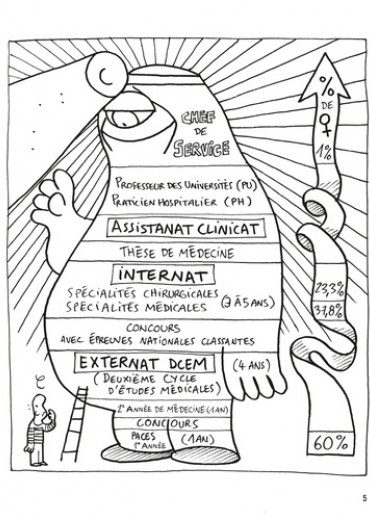 CHEF
DE
SERVICE
PROFESSEUR DES UNIVERSITÉS (PU)
PRATICIEN HOSPITALIER (PH)
ASSISTANAT CLINICAT
THÈSE DE MÉDECINE
INTERNAT
SPÉCIALITÉS CHIRURGICALES
SPÉCIALITÉS MÉDICALES
(2 À 5 ANS)
CONCOURS
AVEC ÉPREUVES NATIONALES CLASSANTES
EXTERNAT DCEM
(4 ANS)
(DEUXIÈME CYCLE
D'ÉTUDES MÉDICALES)
1e ANNÉE DE MÉDECINE (1 AN)
CONCOURS
PACES
1e ANNÉE
(1 AN)
%
DE
♀
1%
23,3%
37,8%
60%
5